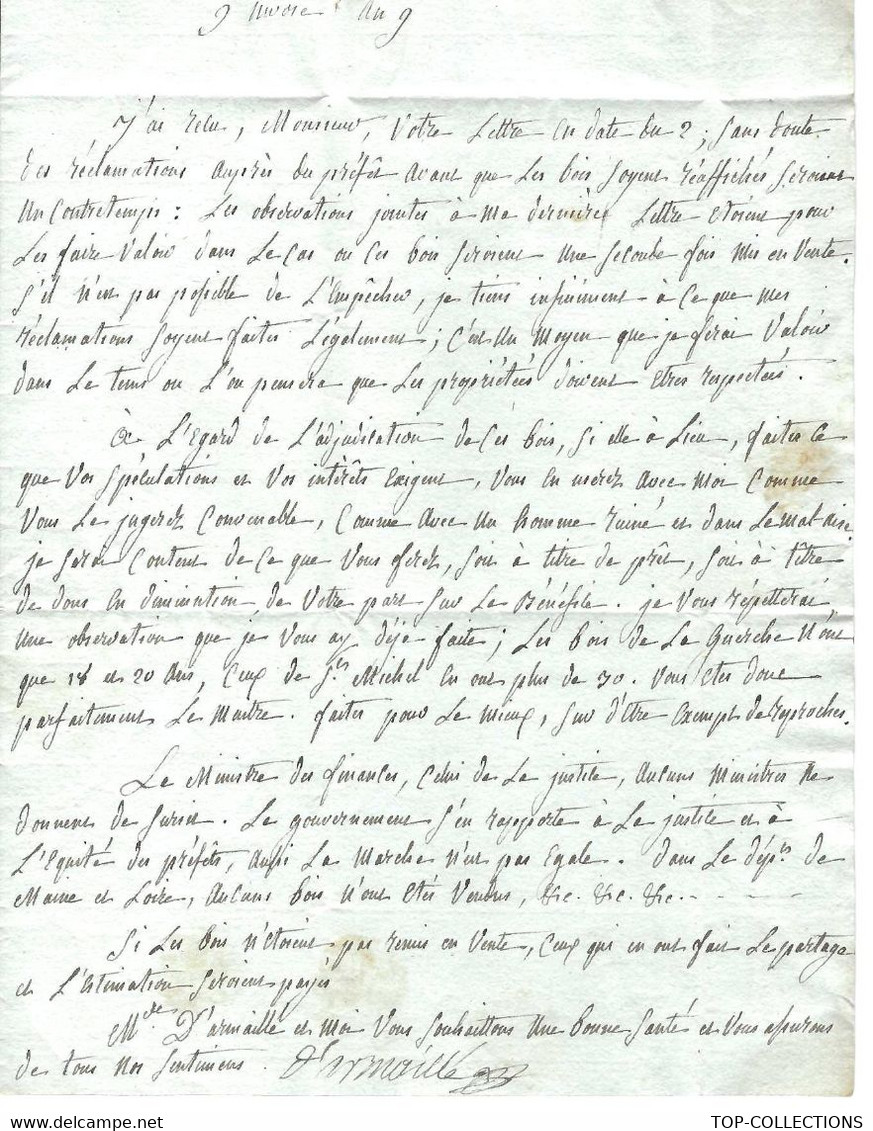 9 nivose an 9
J'ai reçu, Monsieur, Votre Lettre en date du 2; sans doute
des réclamations auprès du préfêt avant que les bois soyent réaffichés seroient
un contretemps: les observations jointes à ma dernière Lettre etoient pour
les faire valoir dans le cas ou ces bois seroient une seconde fois mis en vente.
s'il n'est pas possible de l'empêcher, je tiens infiniment à ce que mes
réclamations soyent faites légalement; c'est un moyen que je ferai valoir
dans le tems ou l'on pensera que les propriétées doivent etres respectées.
à l'egard de l'adjudication de ces bois, si elle à lieu, faites ce
que vos spéculations et vos intérêts exigent, vous en userez avec moi comme
vous le jugerez convenable, comme avec un homme ruiné et dans le mal aise.
je serai content de ce que vous ferez, soit à titre de prêt, soit à têtre
de dons en diminution de votre part sur le bénéfice. je vous répetterai
une observation que je vous ay déja faite; les bois de la Guerche n'ont
que 18 et 20 ans, ceux de St Michel en ont plus de 30. vous etes donc
parfaitement le maitre. faites pour le mieux, sur d'être exempt de reproches.
Le Ministre des finances, celui de la justice, aucuns ministres ne
donnent de sursis. Le gouvernement s'en rapporte à la justice et à
l'equité des préfêts, aussi la marche n'est pas egale. dans le dépt de
Maine et Loire, aucuns bois n'ont etés vendus, &c. &c. &c. - - - -
si les bois n'etoient pas remis en vente, ceux qui en ont fait le partage
et l'estimation seroient payés
Mde D'armaillé et moi vous souhaittons une bonne santé et vous assurons
de tous nos sentimens. D'armaillé
TOP-COLLECTIONS